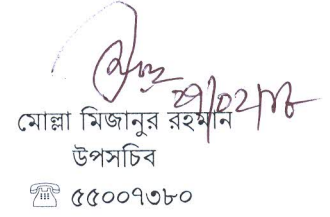 মোল্লা মিজানুর রহমান
উপসচিব
☏ ৫৫০০৭৩৮০